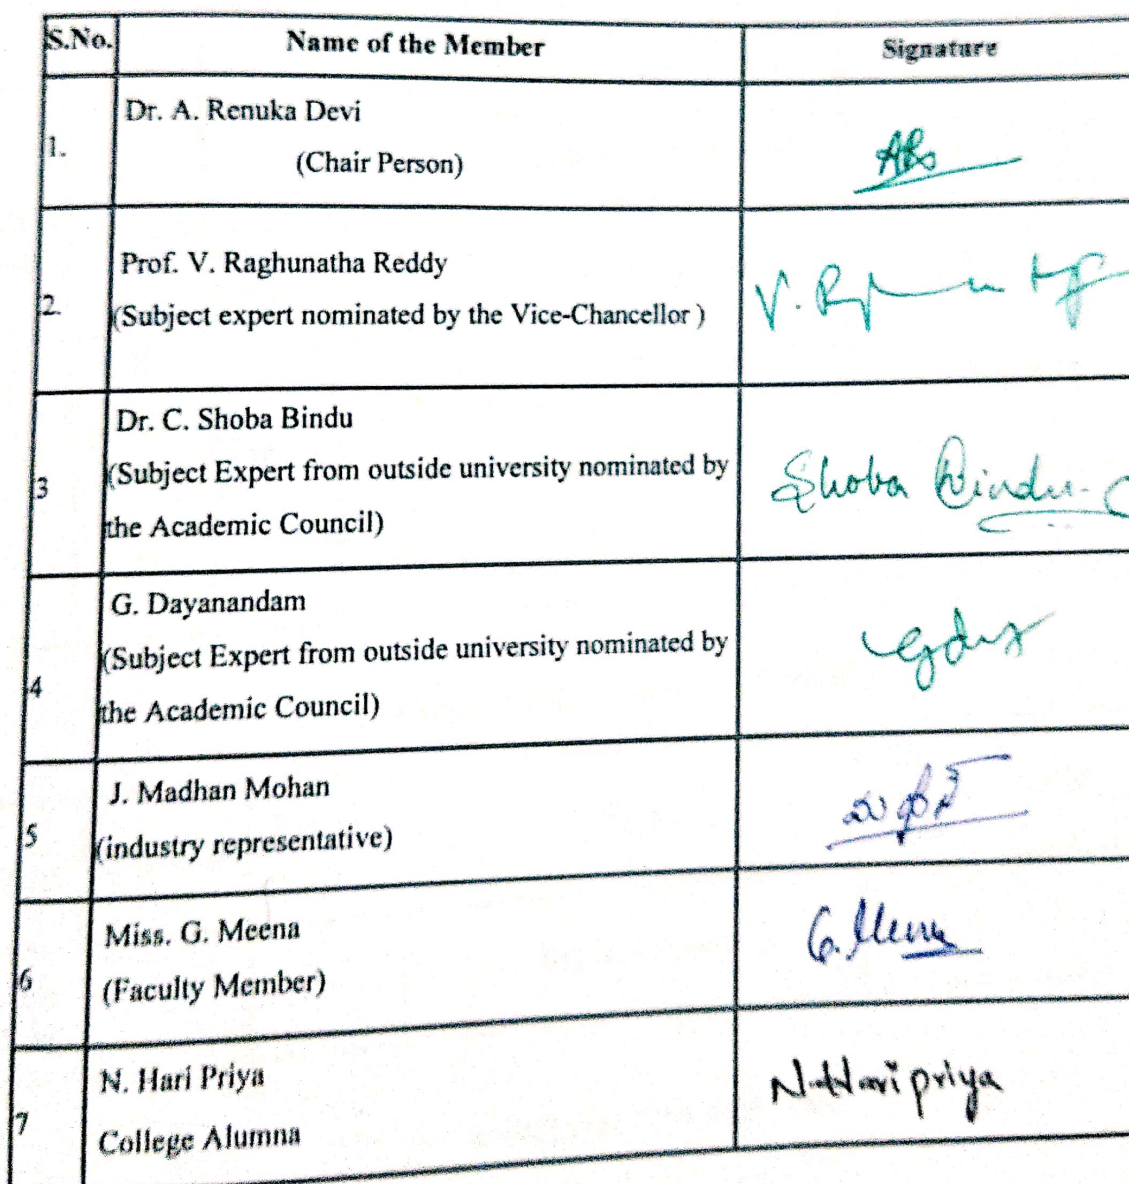 S.No. Name of the Member Signature
1. Dr. A. Renuka Devi
(Chair Person)
2. Prof. V. Raghunatha Reddy
(Subject expert nominated by the Vice-Chancellor )
3 Dr. C. Shoba Bindu
(Subject Expert from outside university nominated by
the Academic Council)
Shoba Bindu. C
4 G. Dayanandam
(Subject Expert from outside university nominated by
the Academic Council)
5 J. Madhan Mohan
(industry representative)
6 Miss. G. Meena
(Faculty Member)
G. Meena
7 N. Hari Priya
College Alumna
N. Hari priya